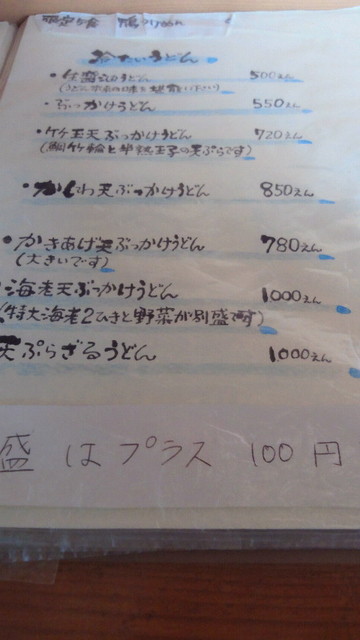 冷たいうどん
・生醤油うどん 500えん
・ぶっかけうどん 550えん
・竹玉天ぶっかけうどん 720えん
(鯛竹輪と半熟玉子の天ぷらです)
・かしわ天ぶっかけうどん 850えん
・かきあげ天ぶっかけうどん 780えん
(大きいです)
海老天ぶっかけうどん 1000えん
(特大海老2ひきと野菜が別盛です)
天ぷらざるうどん 1000えん
盛はプラス 100円